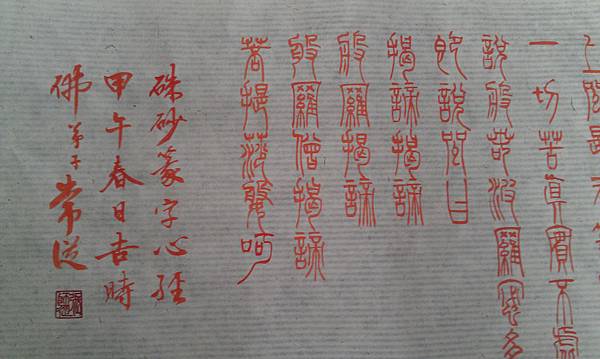 上咒是无等
一切苦真實不虛
說般若波羅蜜多
即說咒曰
揭諦揭諦
般羅揭諦
般羅僧揭諦
菩提薩婆呵
硃砂篆字心經
甲午春日吉時
佛弟子常從